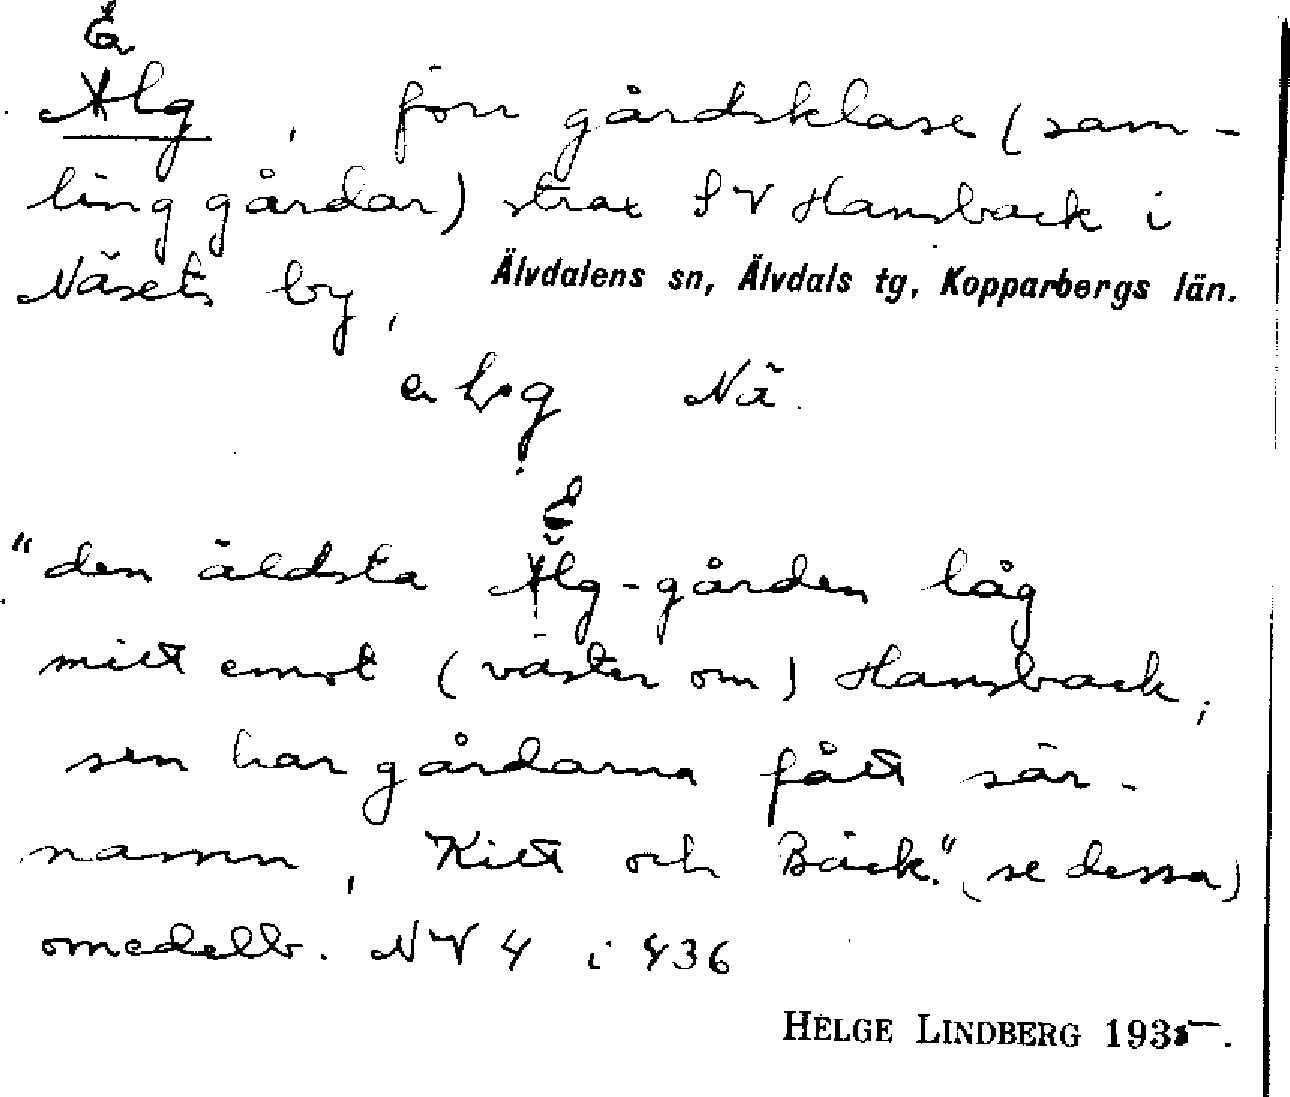 Ä
Älg, förr gårdsklase (sam-
ling gårdar) strax SV Hansback i
Näsets by, Älvdalens sn, Älvdals tg, Kopparbergs län.
Nä.
E
"den äldsta Älg-gården låg
mitt emot (väster om) Hansback,
sen har gårdarna fått sär-
namn, Kitt och Bäck." (se dessa)
omedelb. NV 4 i 436
HELGE LINDBERG 1935.